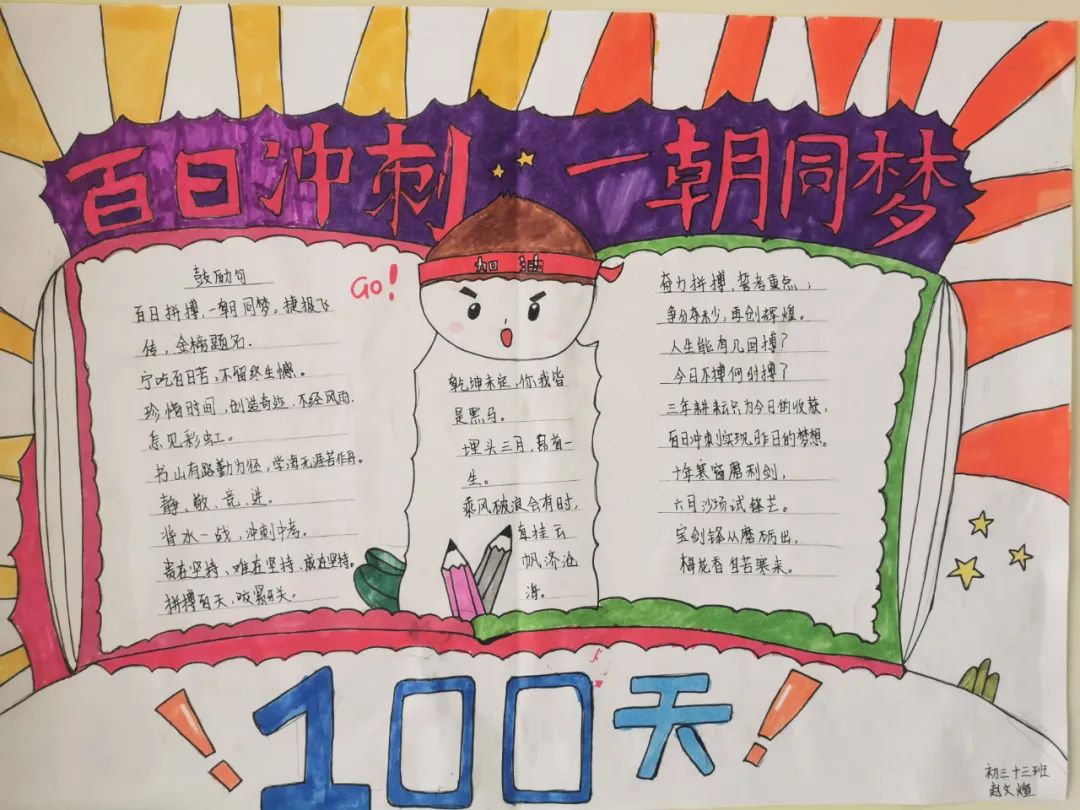 百日冲刺 一朝同梦
加油
Go!
鼓励句
百日拼搏,一朝同梦。捷报飞
传,金榜题名.
宁吃百日苦,不留终生憾。
珍惜时间,创造奇迹.不经风雨.
怎见彩虹。
书山有路勤为径,学海无涯苦作舟。
静、敬、竞、进。
背水一战,冲刺中考。
贵在坚持、难在坚持、成在坚持。
拼搏百天,咬紧牙关。
乾坤未定,你我皆
是黑马。
埋头三月,
生。
乘风破浪会有时,
直挂云
帆济沧
海。
奋力拼搏,誓考重点;
争分夺秒,再创辉煌。
人生能有几回搏?
今日不搏何时搏?
三年耕耘只为今日的收获,
百日冲刺实现昨日的梦想。
十年寒窗磨利剑,
六月沙场试锋芒。
宝剑锋从磨砺出,
梅花香自苦寒来。
!100天!
初三十三班
赵文煊